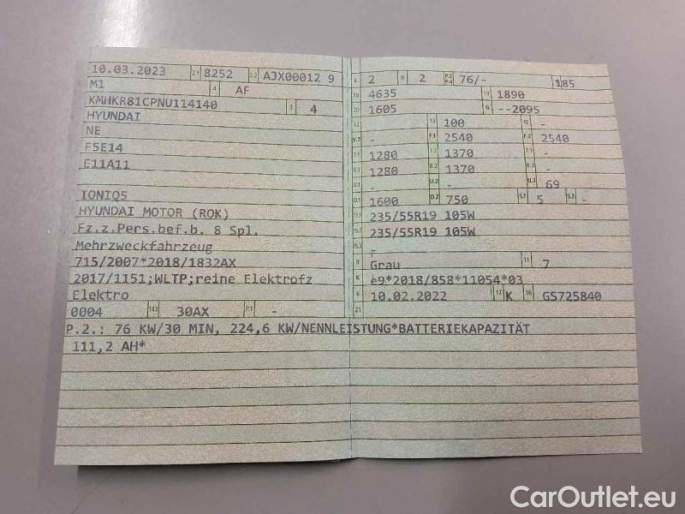 10.03.2023 2.1 8252 2.2 AJX00012 9
M1 4 AF
KMHKR81CPNU114140 3 4
HYUNDAI
NE
F5E14
E11A11
IONIQ5
HYUNDAI MOTOR (ROK)
Fz.z.Pers.bef.b. 8 Spl.
Mehrzweckfahrzeug
715/2007*2018/1832AX
2017/1151;WLTP;reine Elektrofz
Elektro
0004 30AX -
2 2 76/- 185
4635 1890
1605 --2095
100 -
- 2540 2540
1280 1370 -
1280 1370 -
- - 69
1600 750 5 -
235/55R19 105W
235/55R19 105W
-
Grau 7
e9*2018/858*11054*03
10.02.2022 K GS725840
P.2.: 76 KW/30 MIN, 224,6 KW/NENNLEISTUNG*BATTERIEKAPAZITÄT
111,2 AH*
CarOutlet.eu